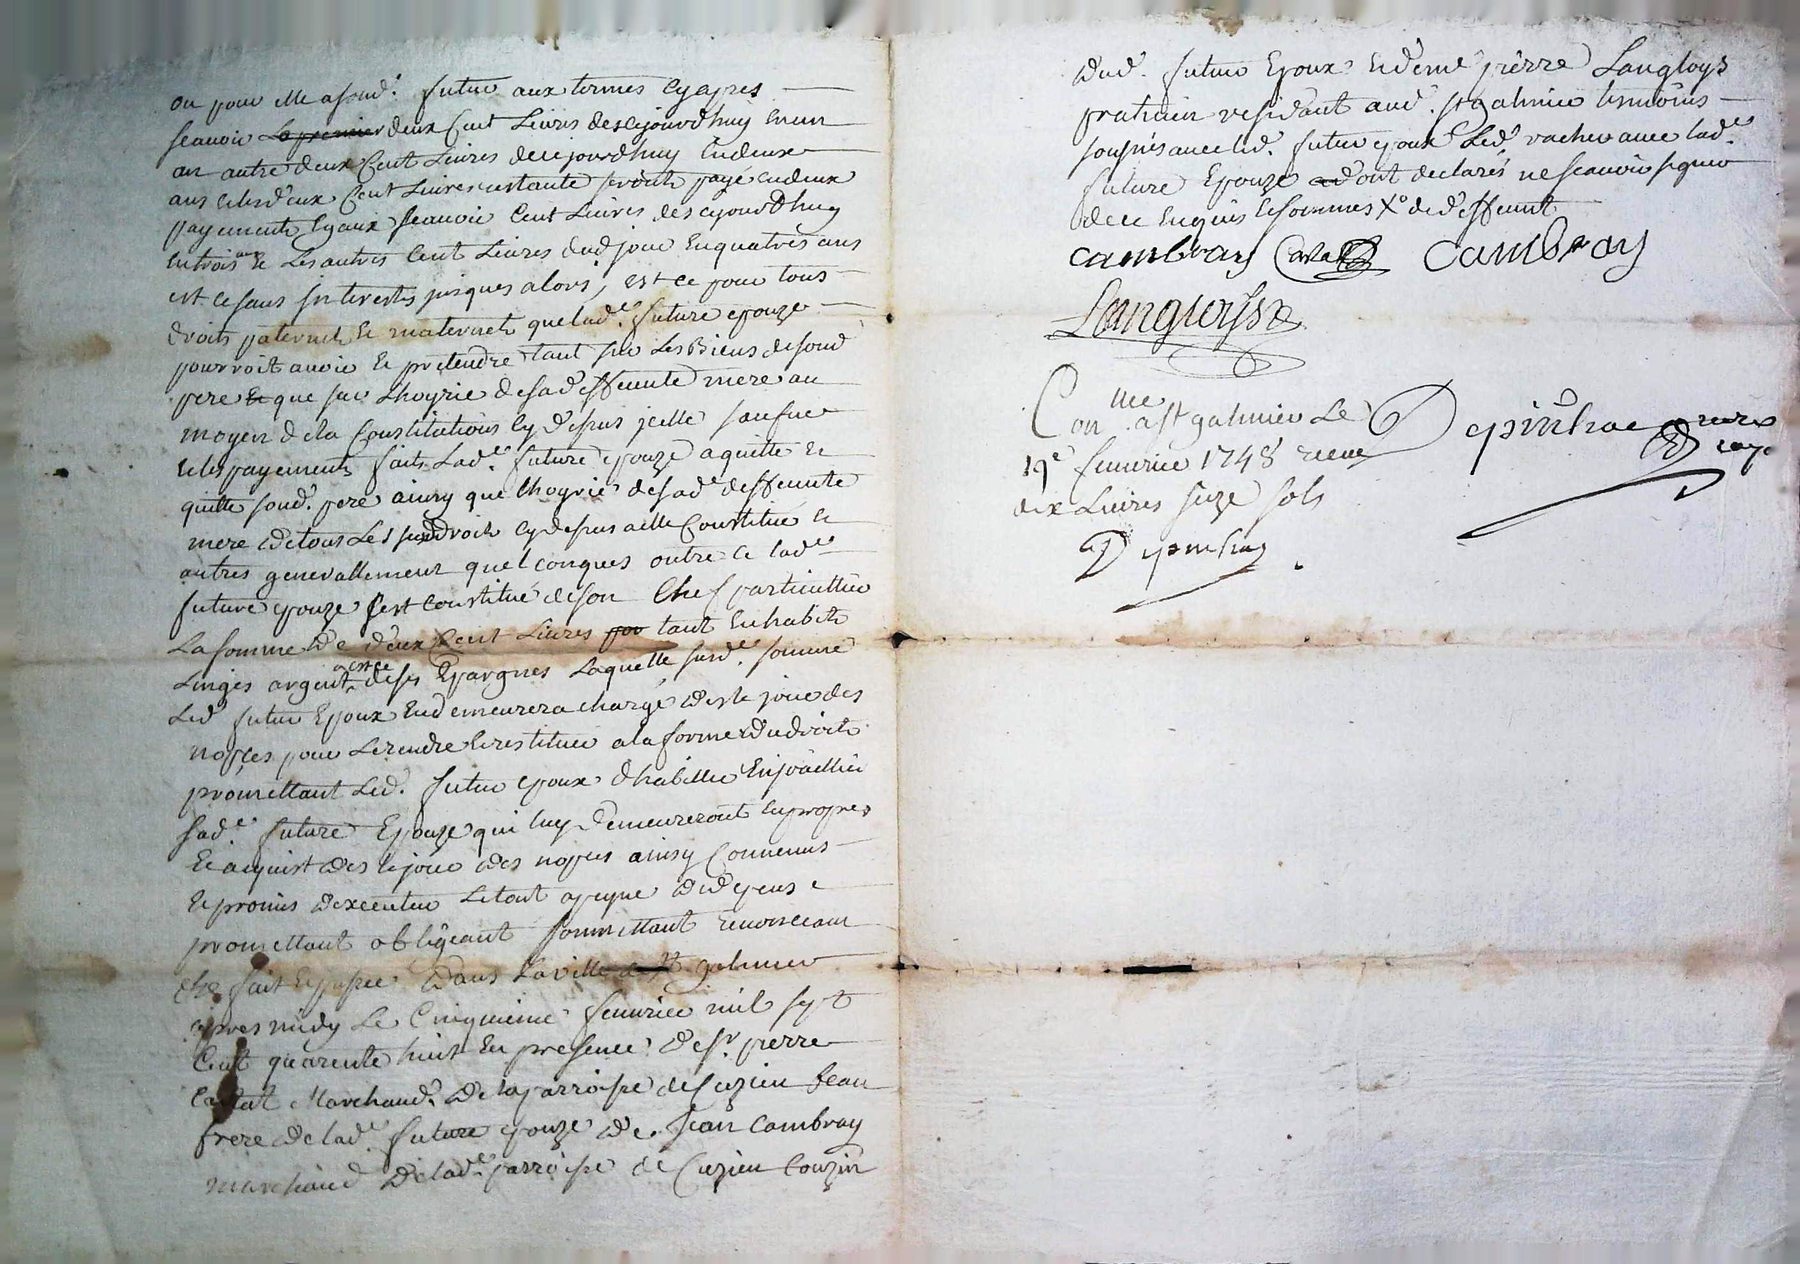 ou pour elle a soud. futur aux termes cy apres
scauoir le premier deux Cent Liures desejourdhuy en un
an autre deux Cent Liures decejourdhuy en deux
ans et les deux Cent Liures restante seront payé en deux
payements Egaux scauoir Cent Liures desejourdhuy
en trois ans Et Les autres Cent Liures dud jour En quatres ans
et ce sans jnterests jusques alors, Et ce pour tous
droits paternels Et maternels que lad.e future epouze
pourroit auoir Et pretendre tant sur Les Biens de soud
pere Et que sur Lhoyrie de sad.e deffeunte mere au
moyen de la Constitution cy desus jcelle
et les payements faits Lad.e future epouze a quitté Et
quitte soud. pere ainsy que Lhoyrie de sad.e deffeunte
mere de tous Les susd droits cy desus a elle Constitué Et
autres generallement quelconques outre ce lad.e
future epouze sest Constitué de son Chef particullier
La somme de deux Cent Liures tant En habits
Linges argent de ses Epargnes Laquelle susd.e somme
Led futur Epoux En demeurera chargé des le jour des
nopces pour Le rendre Et restituer a la forme du droit
promettant Led. futur epoux dhabiller Enjoüallier
sad.e future Epouze qui luy demeureront En propre
Et acquist des le jour des nopces ainsy Conuenus
Et promis dexecuter Le tout a peyne ded
promettant obligeant soumettant renonceant
fait Et passé dans La ville de St galmier
apres midy Le Cinquieme feurier mil sept
Cent quarente huit En presence de Sr pierre
marchand De la parroisse de Cuzieu beau
frere de lad.e future epouze de Jean Cambray
marchand De lad.e parroisse de Cuzieu Couzin
dud. futur Epoux Et de me pierre Langloys
praticien residant aud. St galmier temoins
sousnés auec led. futur epoux Led. vacher auec lad.e
future Epouze ont declarés ne scauoir signer
de ce Enquis Et sommés
cambray Cambray
Langloys
Con.lle a St galmier Le
19e feurier 1748 receu
dix Liures seize sols